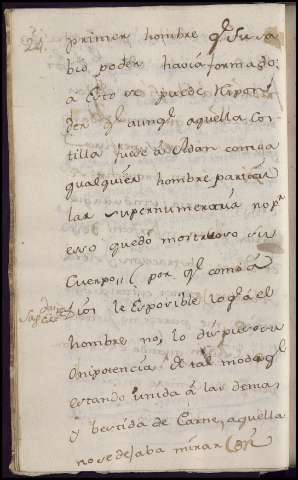 24.
primer hombre qe Su sa
bio poder havia formado:
a Esto se puede Respon
der qe aunqe aquella Cos
tilla fuese a Adan como a
qualquier hombre particu
lar supernumeraria no pr
esso quedó mostruoso su
Cuerpo, (por qe como á
Dios le Es posible lo qe á el
hombre no, lo dispuso su
Onipotencia de tal modo qe
estando unida á las demas
y bestida de Carne, aquella
no se dejaba mirar Con